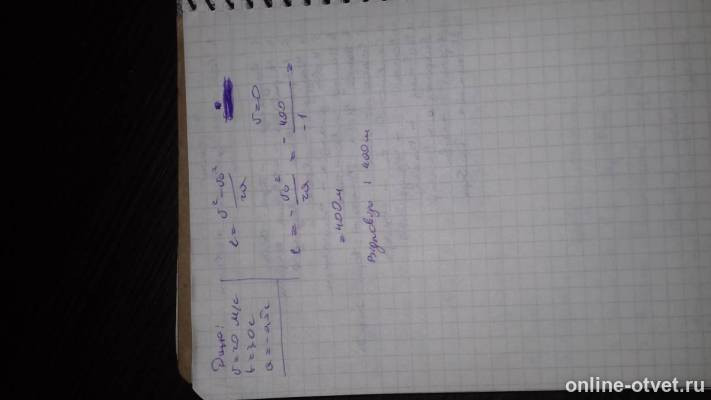 Дано:
v=20 м/с
t=30с
a=-0,5с
l=v²-v₀²/2a
v=0
l=-v₀²/2a=-400/-1=
=400м
400м
online-otvet.ru